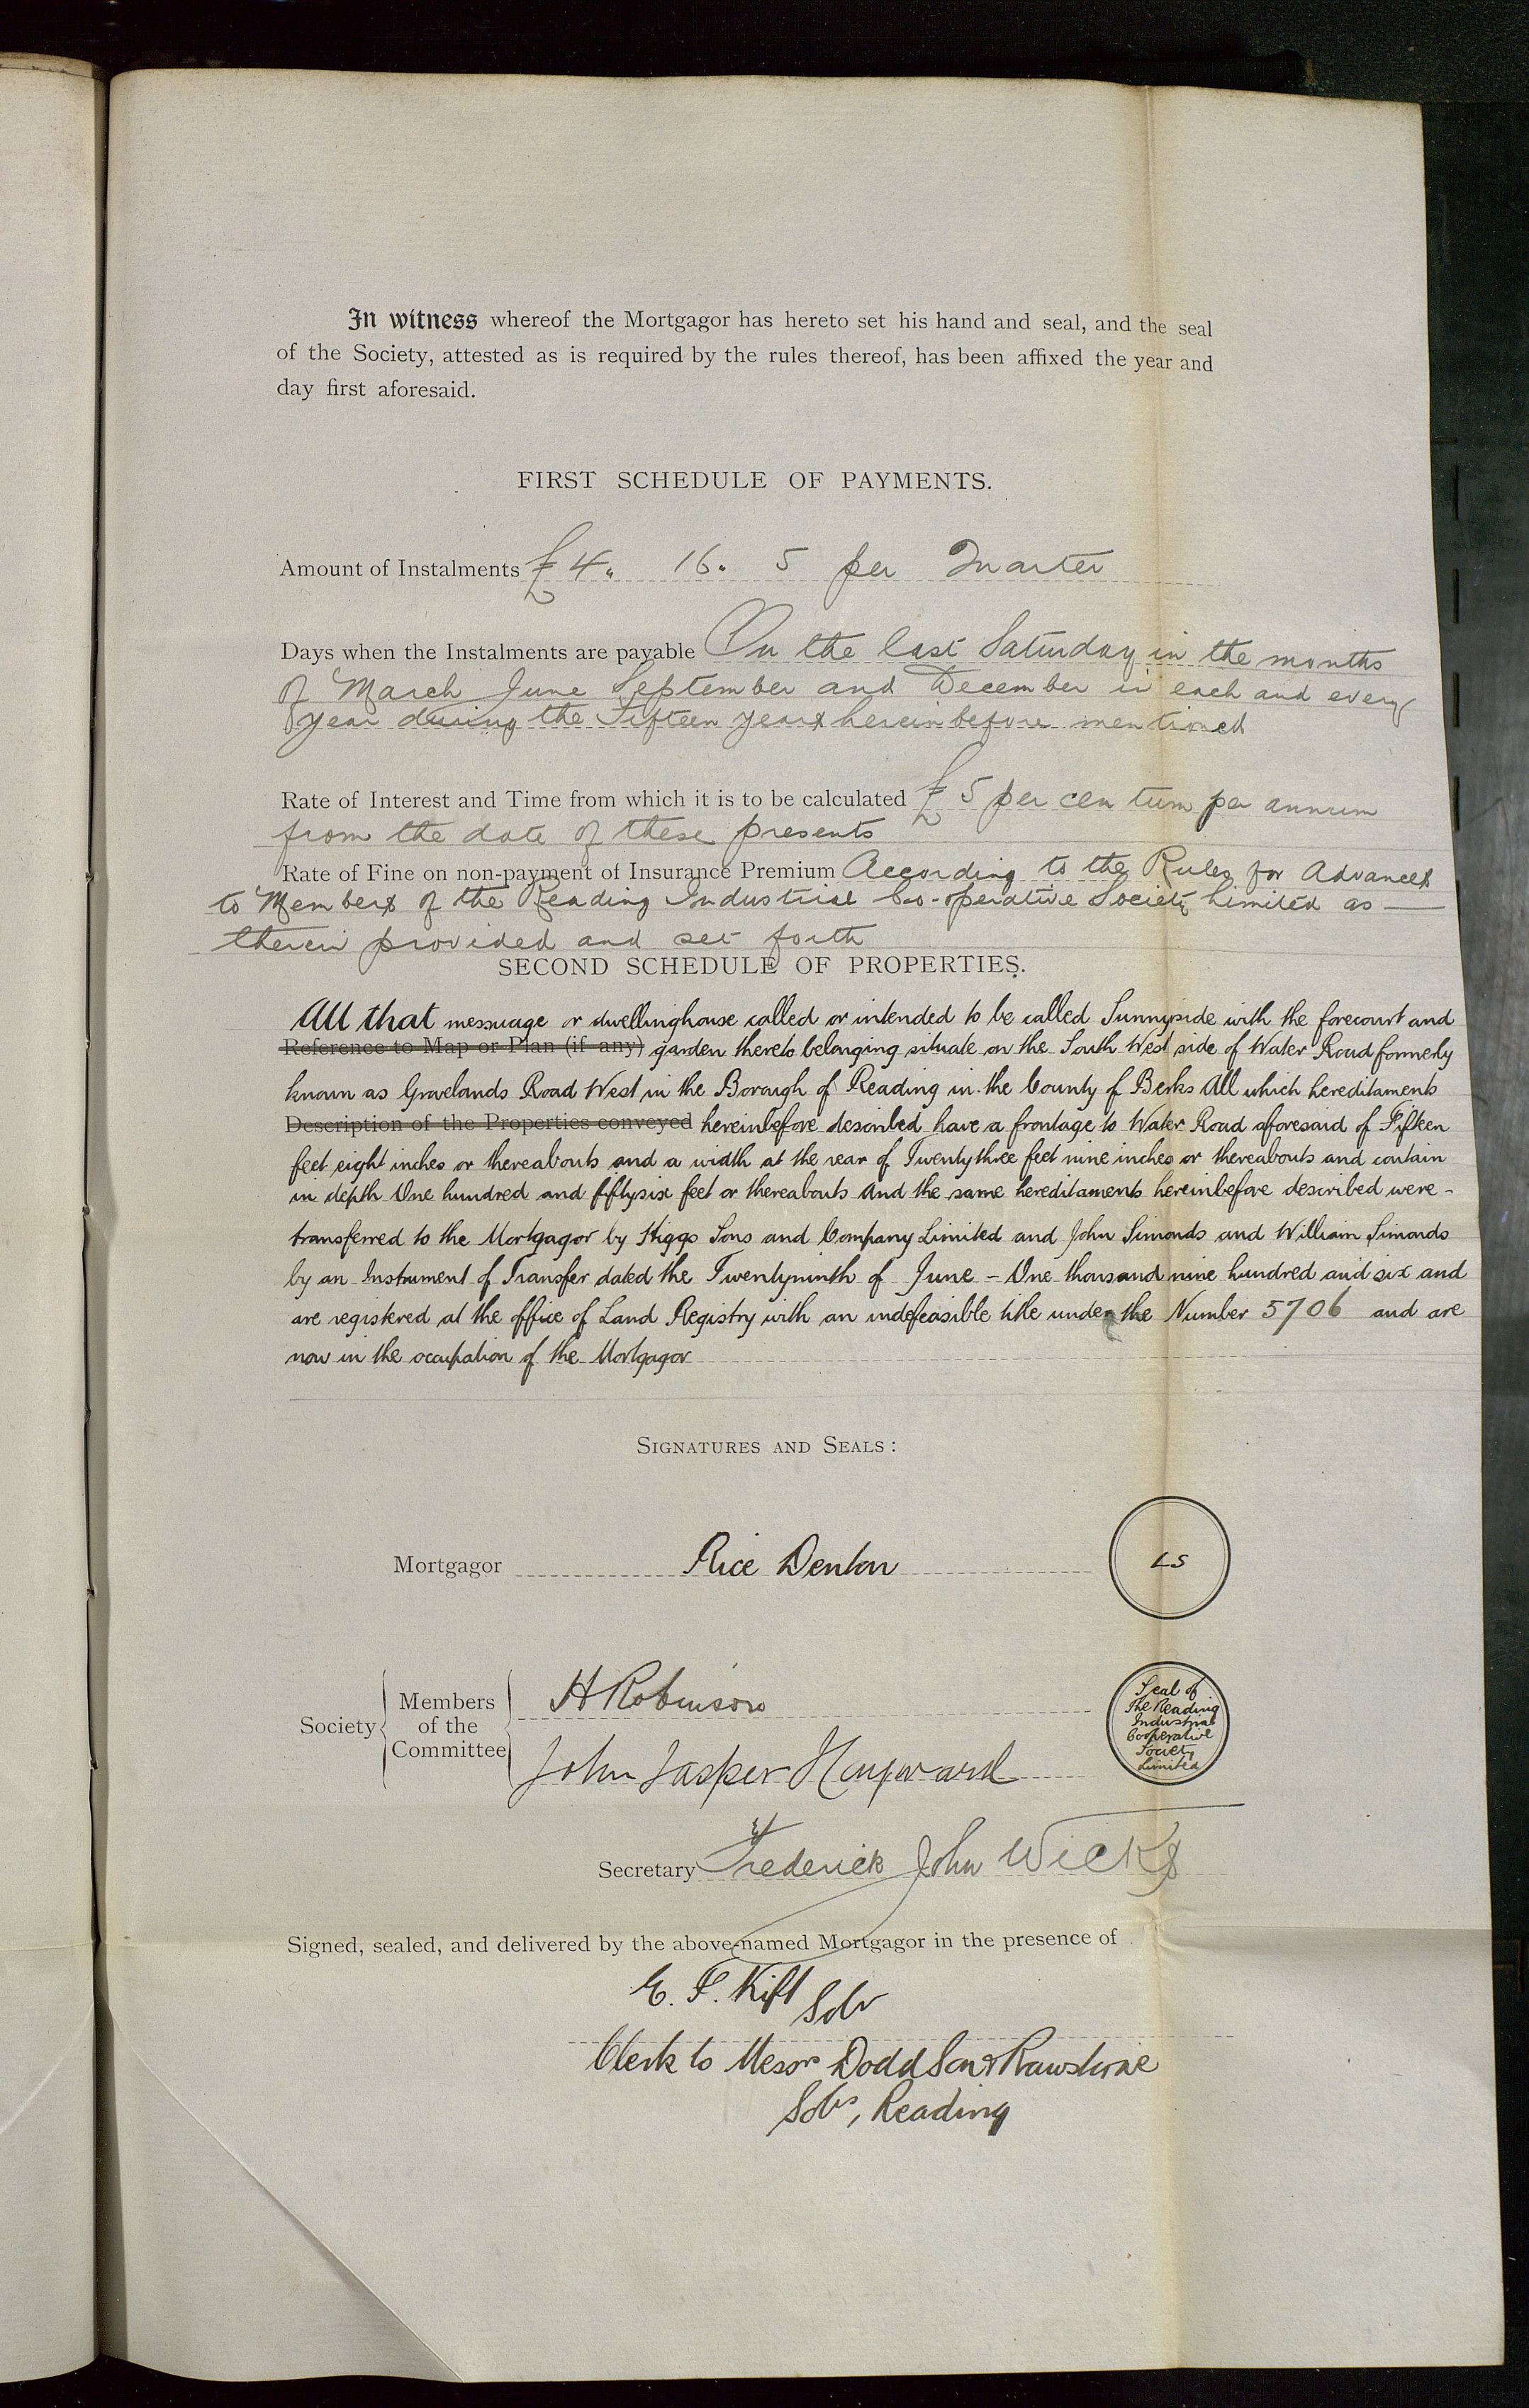 In witness whereof the Mortgagor has hereto set his hand and seal, and the seal
of the Society, attested as is required by the rules thereof, has been affixed the year and
day first aforesaid.
FIRST SCHEDULE OF PAYMENTS.
Amount of Instalments £4. 16. 5 per Quarter
Days when the Instalments are payable On the last Saturday in the months
of March June September and December in each and every
year during the Fifteen years hereinbefore mentioned
Rate of Interest and Time from which it is to be calculated £5 per centum per annum
from the date of these presents
Rate of Fine on non-payment of Insurance Premium According to the Rules for Advances
to Members of the Reading Industrial Co-operative Society Limited as
therein provided and set forth
SECOND SCHEDULE OF PROPERTIES.
All that messuage or dwellinghouse called or intended to be called Sunnyside with the forecourt and
Reference to Map or Plan (if any) garden thereto belonging situate on the South West side of Water Road formerly
known as Gravelands Road West in the Borough of Reading in the County of Berks All which hereditaments
Description of the Properties conveyed hereinbefore described have a frontage to Water Road aforesaid of Fifteen
feet eight inches or thereabouts and a width at the rear of Twentythree feet nine inches or thereabouts and contain
in depth One hundred and fiftysix feet or thereabouts And the same hereditaments hereinbefore described were -
transferred to the Mortgagor by Higgs Sons and Company Limited and John Simonds and William Simonds
by an Instrument of Transfer dated the Twentyninth of June - One thousand nine hundred and six and
are registered at the office of Land Registry with an indefeasible title under the Number 5706 and are
now in the occupation of the Mortgagor
SIGNATURES AND SEALS:
Mortgagor Rice Denton LS
Society Members of the Committee H Robinson
John Jasper Hayward
Seal of
The Reading
Industrial
Cooperative
Society
Limited
Secretary Frederick John Wicks
Signed, sealed, and delivered by the above-named Mortgagor in the presence of
E. F. Kift Solr
Clerk to Messrs Dodd Son & Rawstorne
Sols, Reading